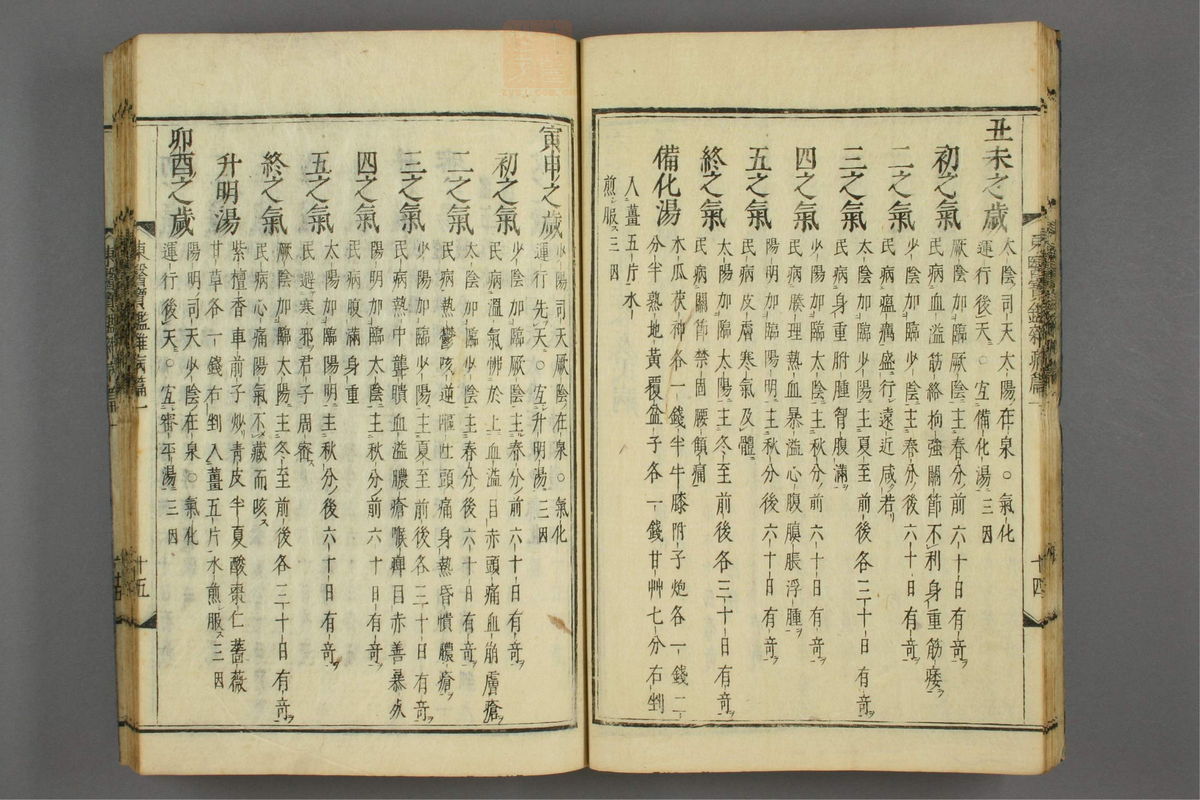 丑未之歲
太陰司天太陽在泉○氣化
運行後天○宜備化湯三因
初之氣
厥陰加臨厥陰主春分前六十日有奇
民病血溢筋絡拘強關節不利身重筋痿
二之氣
少陰加臨少陰主春分後六十日有奇
民病瘟癘盛行遠近咸若
三之氣
太陰加臨少陽主夏至前後各三十日有奇
民病身重胕腫胷腹滿
四之氣
少陽加臨太陰主秋分前六十日有奇
民病腠理熱血暴溢心腹䐜脹浮腫
五之氣
陽明加臨陽明主秋分後六十日有奇
民病皮膚寒氣及體
終之氣
太陽加臨太陽主冬至前後各三十日有奇
民病關節禁固腰痛
備化湯
木瓜茯神各一錢半牛膝附子炮各一錢二
分半熟地黃覆盆子各一錢甘艸七分右剉
入薑五片水
煎服三因
東醫寶鑑雜病篇一
十四
寅申之歲
少陽司天厥陰在泉○氣化
運行先天○宜升明湯三因
初之氣
少陰加臨厥陰主春分前六十日有奇
民病溫氣怫於上血溢目赤頭痛血崩膚瘡
二之氣
太陰加臨少陰主春分後六十日有奇
民病熱鬱咳逆嘔吐頭痛身熱昏憒膿瘡
三之氣
少陽加臨少陽主夏至前後各三十日有奇
民病熱中聾瞶血溢膿瘡喉痺目赤善暴死
四之氣
陽明加臨太陰主秋分前六十日有奇
民病腹滿身重
五之氣
太陽加臨陽明主秋分後六十日有奇
民避寒邪君子周密
終之氣
厥陰加臨太陽主冬至前後各三十日有奇
民病心痛陽氣不藏而咳
升明湯
紫檀香車前子炒青皮半夏酸棗仁薔薇
甘草各一錢右剉入薑五片水煎服三因
卯酉之歲
陽明司天少陰在泉○氣化
運行後天○宜審平湯三因
東醫寶鑑雜病篇一
十五